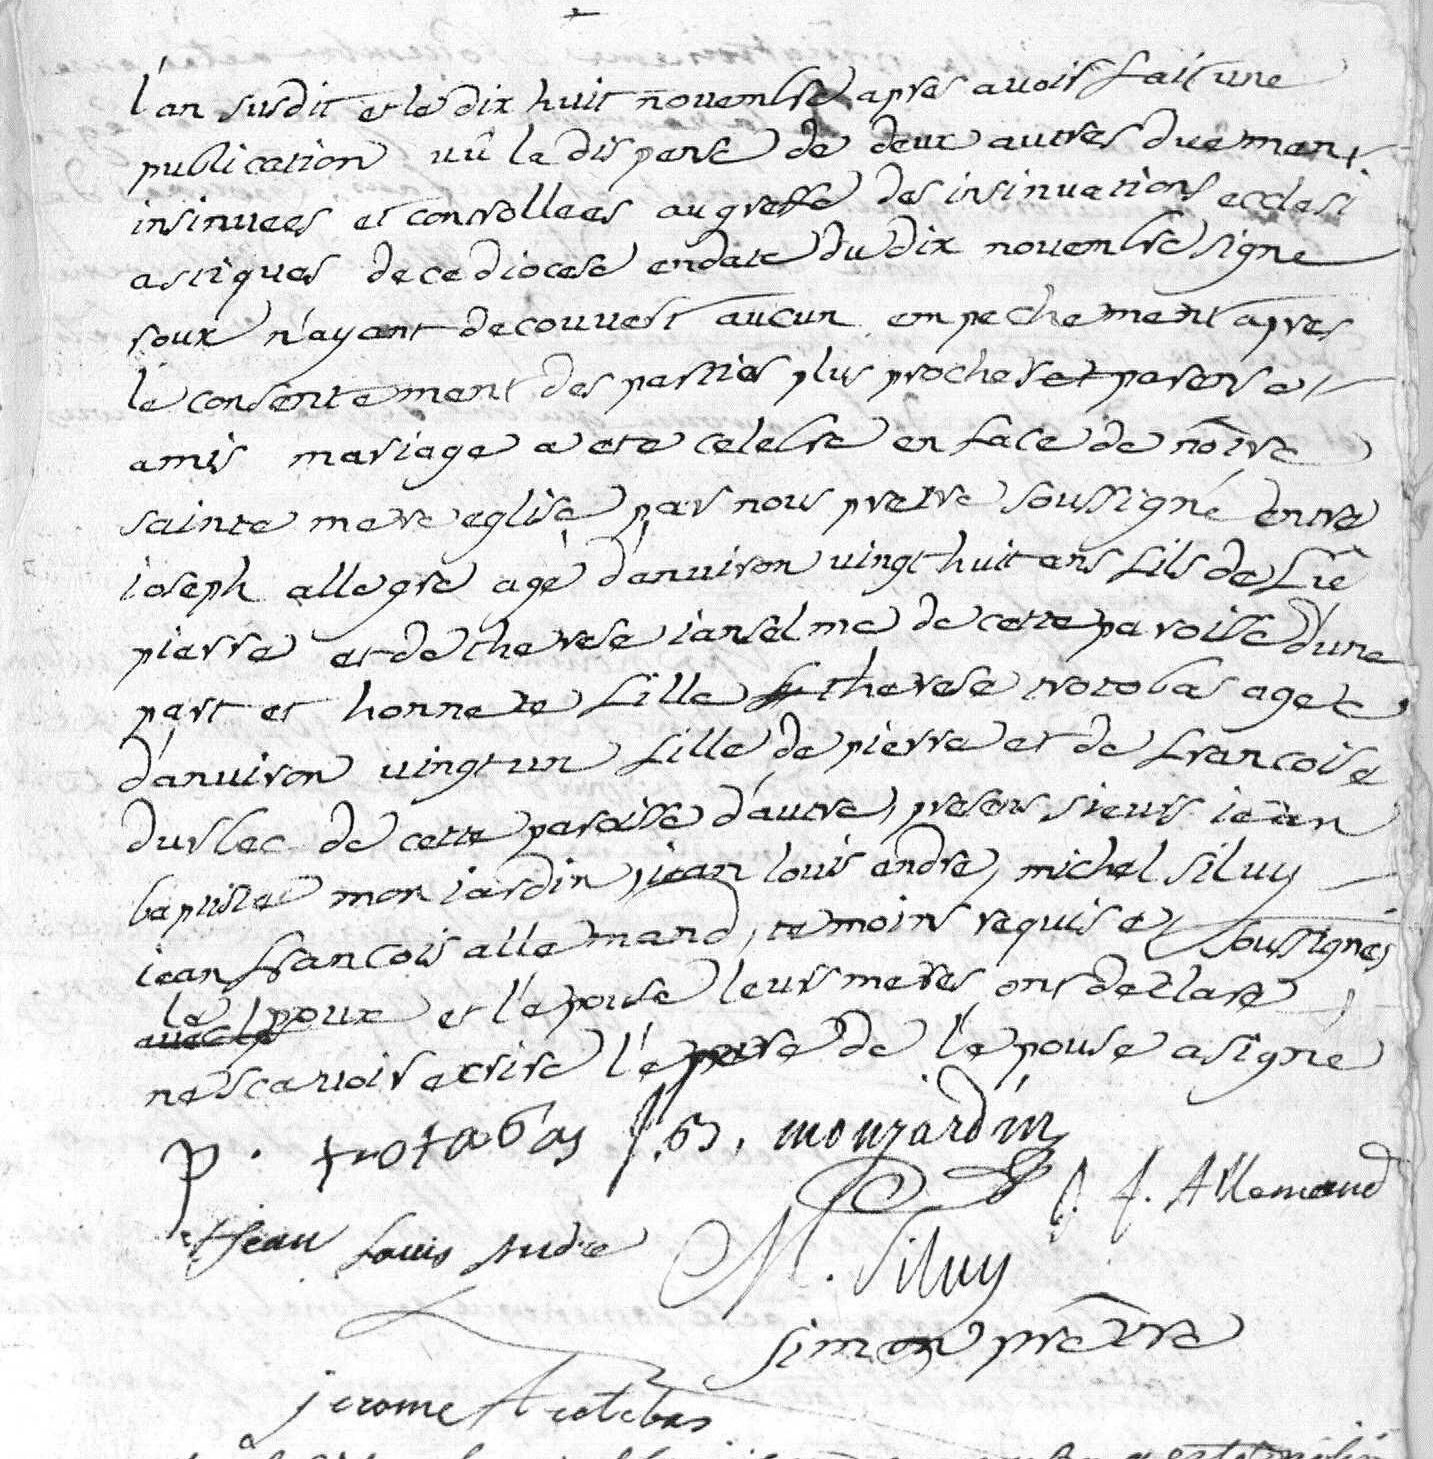 l'an susdit et le dix huit novembre apres avoir fait une
publication vû la dispense de deux autres duement
insinuees et controllees au greffe des insinuations eclesi
astiques de ce diocese en date du dix novembre signe
roux n'ayant decouvert aucun empechement apres
le consentement des parties plus proches et parens et
amis mariage a ete celebre en face de nôtre
sainte mere eglise par nous pretre soussigné entre
ioseph allegre agé d'anuiron vingt huit ans fils de feu
pierre et de therese ianselme de cette paroisse d'une
part et honnete fille therese trotobas agee
d'anuiron vingt un fille de pierre et de francoise
durbec de cette paroisse d'autre, presens sieurs iean
baptiste mon iardin, iean louis andre, michel siluy
iean francois allemand, temoins requis et soussignes
le poux et l'epouse leurs meres ont declare
ne scavoir ecrire le pere de l'epouse a signe
P. trotobas J. B. monjardin
J. f. Allemand
Jean Louis Andre M. Siluy
simon prêtre
jerome trotebas